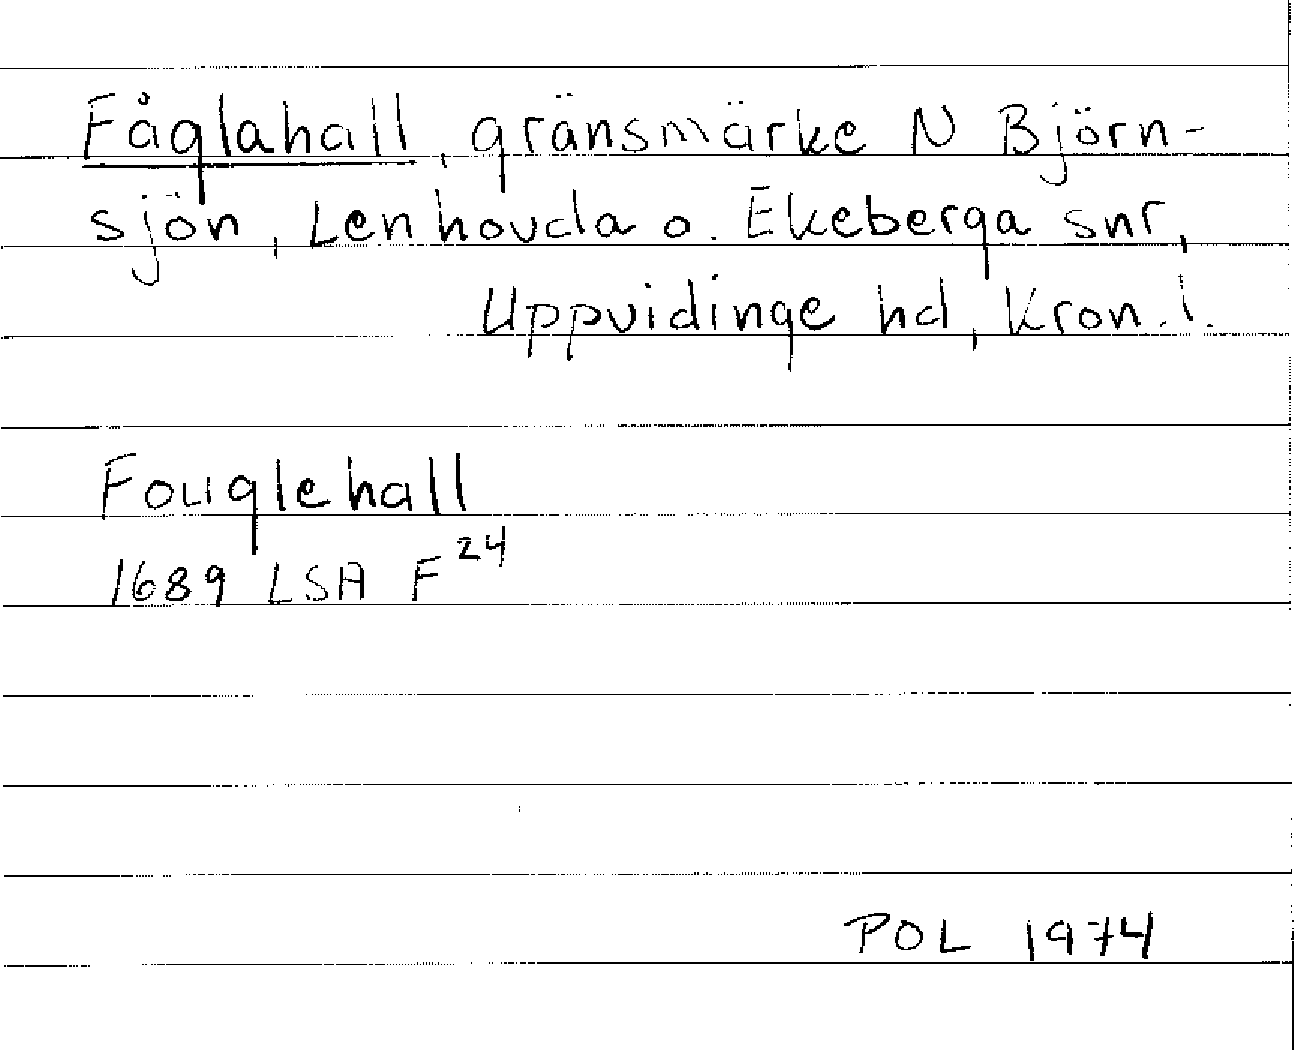 Fåglahall, gränsmärke N Björn-
sjön, Lenhovda o. Ekeberga snr,
Uppvidinge hd, Kron.l.
Fouglehall
1689 LSA F 24
POL 1974